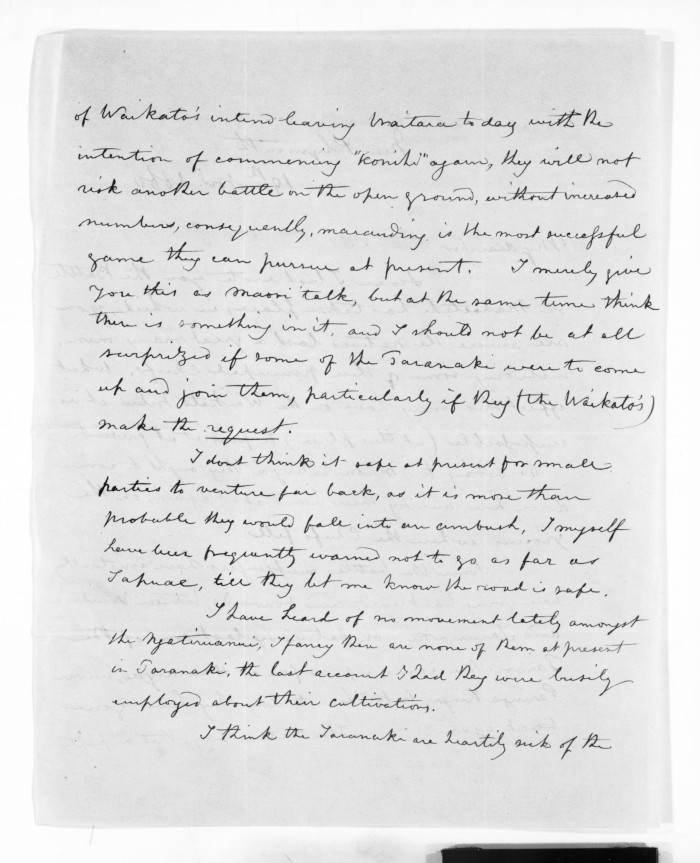 of Waikato's intend leaving Waitara to day with the
intention of commencing "Konihi" again, they will not
risk another battle on the open ground, without increased
numbers, consequently, marauding is the most successful
game they can pursue at present. I merely give
you this as maori talk, but at the same time think
there is something in it and I should not be at all
surprized if some of the Taranaki were to come
up and join them, particularly if they (the Waikato's)
make the request.
I dont think it safe at present for small
parties to venture far back, as it is more than
probable they would fall into an ambush, I myself
have been frequently warned not to go as far as
Tapuae, till they let me know the road is safe.
I have heard of no movement lately amongst
the Ngatiruanui, I fancy there are none of them at present
in Taranaki, the last account I had they were busily
employed about their cultivations.
I think the Taranaki are heartily sick of the